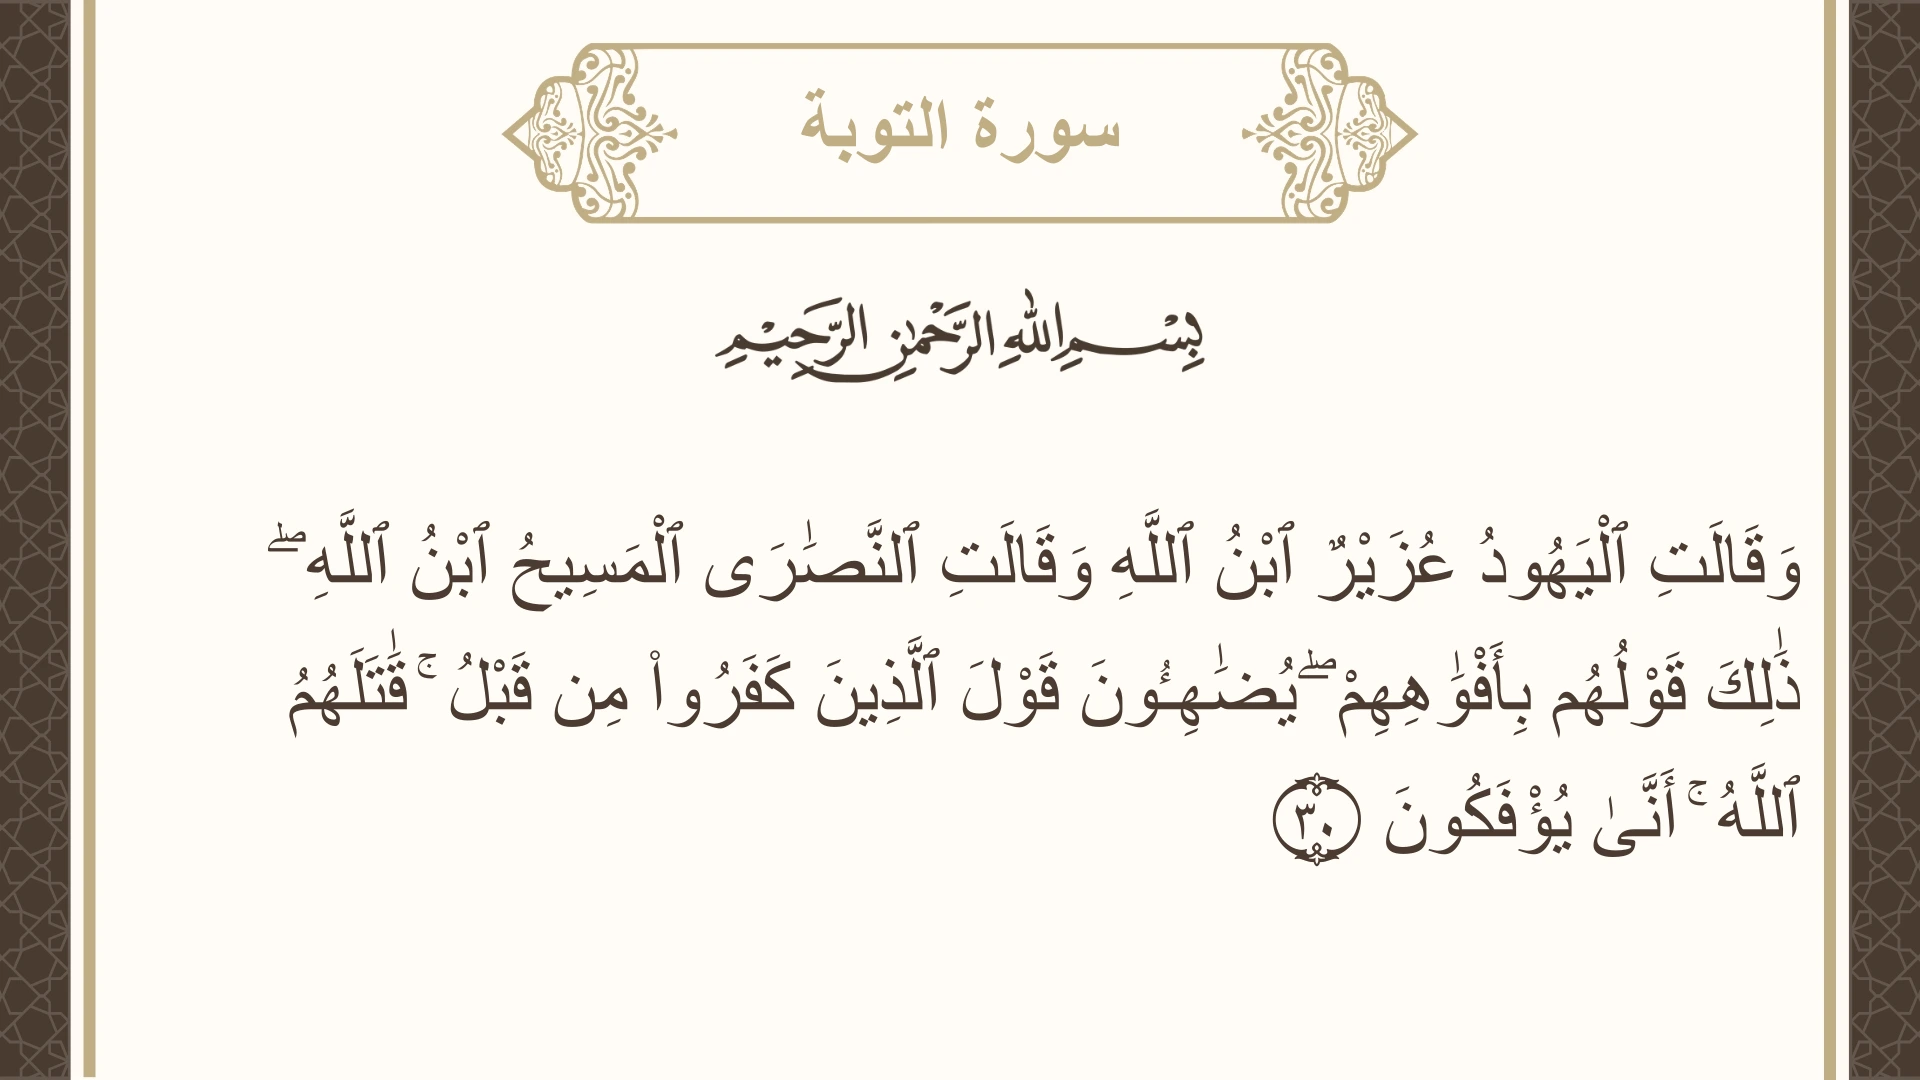 سورة التوبة
بِسْمِ اللهِ الرَّحْمٰنِ الرَّحِيْمِ
وَقَالَتِ ٱلْيَهُودُ عُزَيْرٌ ٱبْنُ ٱللَّهِ وَقَالَتِ ٱلنَّصَٰرَى ٱلْمَسِيحُ ٱبْنُ ٱللَّهِ ۖ
ذَٰلِكَ قَوْلُهُم بِأَفْوَٰهِهِمْ ۖ يُضَٰهِـُٔونَ قَوْلَ ٱلَّذِينَ كَفَرُوا۟ مِن قَبْلُ ۚ قَٰتَلَهُمُ
ٱللَّهُ ۚ أَنَّىٰ يُؤْفَكُونَ ٣٠